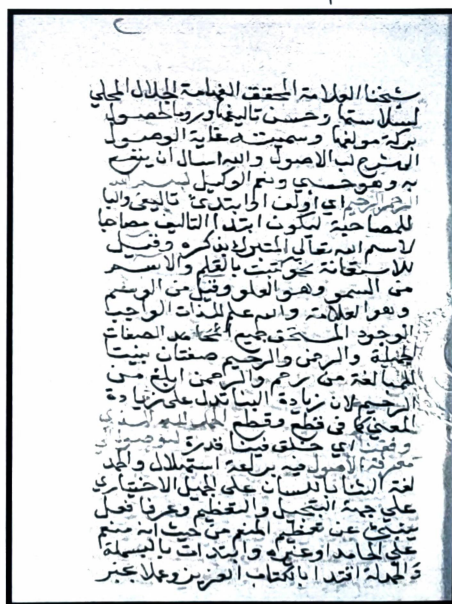 شيخنا العلامة المحقق الفهامة الجلال المحلي
لسلاستها وحسن تاليفها وروما لحصول
بركة مولفها وسميته غاية الوصول
الى شرح لب الاصول والله اسال ان ينفع
به وهو حسبي ونعم الوكيل بسم الله
الرحمن الرحيم اي اولف او ابتدئ تاليفي والبا
للمصاحبة ليكون ابتدا التاليف مصاحبا
لاسم الله تعالى المتبرك بذكره وقيل
للاستعانة نحو كتبت بالقلم والاسم
من السمو وهو العلو وقيل من الوسم
وهو العلامة والله علم للذات الواجب
الوجود المستحق لجميع المحامد الصفات
الجميلة والرحمن والرحيم صفتان بنيتا
للمبالغة من رحم والرحمن ابلغ من
الرحيم لان زيادة البنا تدل على زيادة
المعنى كما في قطع وقطع الحمد لله الذي
وفقنا اي خلق فينا قدرة لوصول الى
معرفة الاصول فيه براعة استهلال والحمد
لغة الثنا باللسان على الجميل الاختياري
على جهة التبجيل والتعظيم وعرفا فعل
ينبئ عن تعظيم المنعم من حيث انه منعم
على الحامد او غيره وابتدات بالبسملة
والحمدلة اقتدا بالكتاب العزيز وعملا بخبر